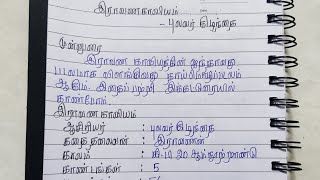 இராவணகாவியம்
- புலவர் குழந்தை
முன்னுரை
இராவண காவியத்தின்
ஆகும். இதைப்பற்றி இக்கட்டுரையில்
காண்போம்.
இராவண காவியம்
ஆசிரியர் : புலவர் குழந்தை
கதை தலைவன் : இராவணன்
காலம் : கி.பி 20 ஆம் நூற்றாண்டு
காண்டங்கள் : 5